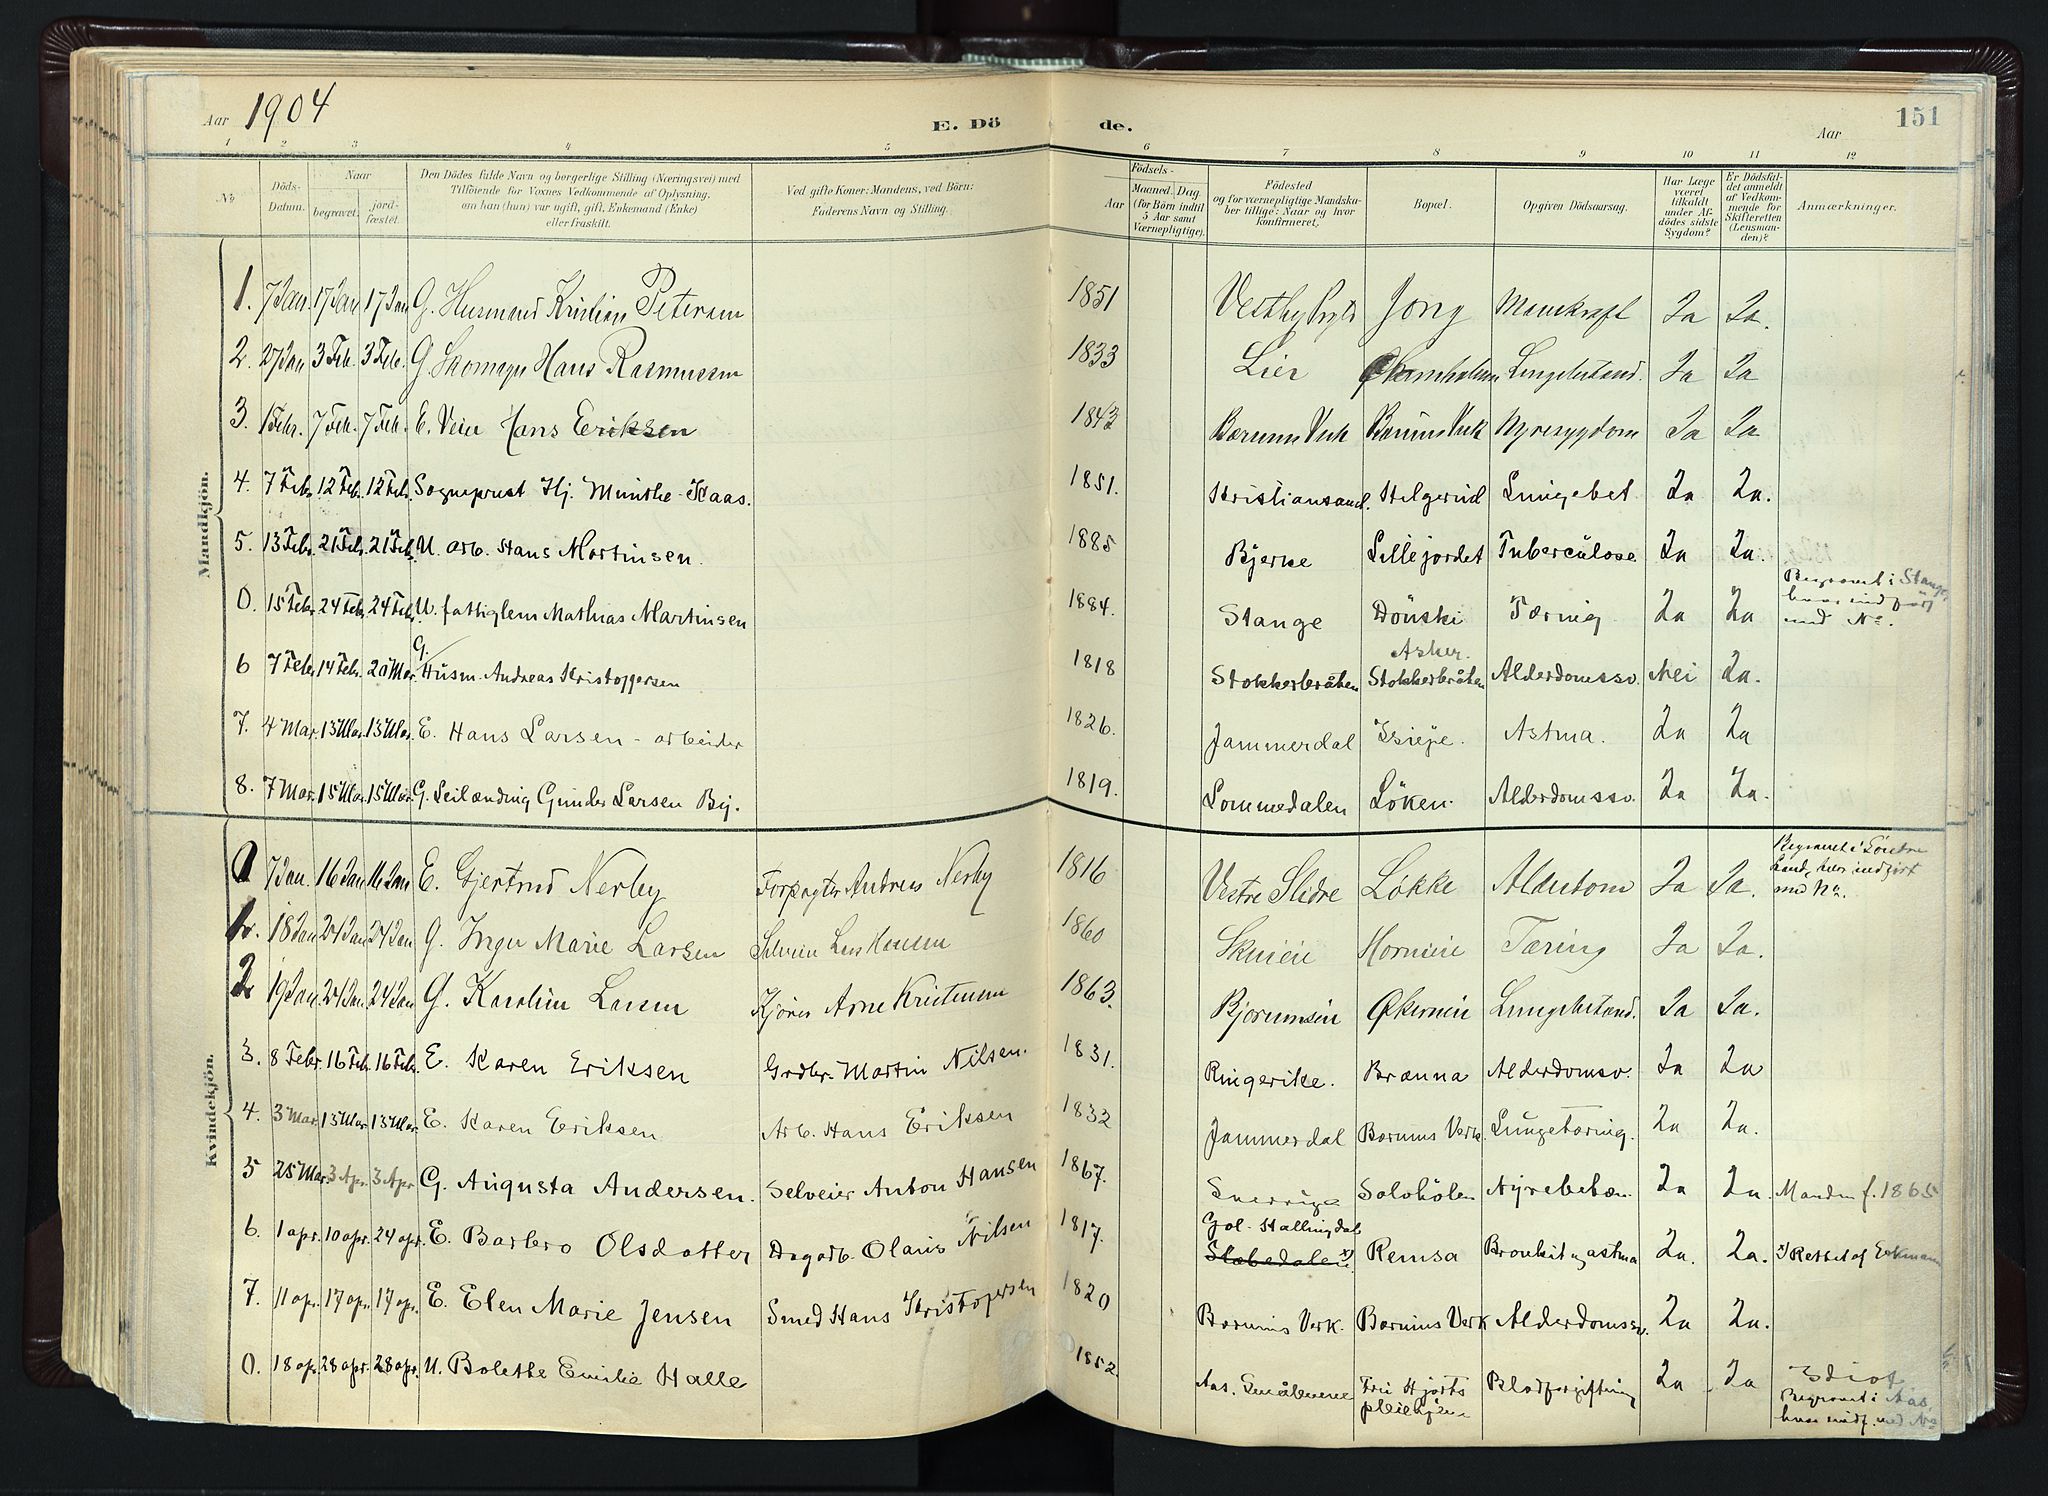 Aar 1904
E. Dö de.
Aar
151
1 2 3 4 5 6 7 8 9 10 11 12
No
Döds-Datum.
Naar begravet. jordfæstet.
Den Dödes fulde Navn og borgerlige Stilling (Næringsvei) med Tilföiende for Voxnes Vedkommende af Oplysning, om han (hun) var ugift, gift, Enkemand (Enke) eller fraskilt.
Ved gifte Koner: Mandens, ved Börn: Faderens Navn og Stilling.
Födsels-
Aar
Maaned. Dag. (for Börn indtil 5 Aar samt Værnepligtige).
Födested og for værnepligtige Mandskaber tillige: Naar og hvor konfirmeret.
Bopæl.
Opgiven Dödsaarsag.
Har Læge været tilkaldt under Afdödes sidste Sygdom?
Er Dödsfaldet anmeldt af Vedkommende for Skifteretten (Lensmanden)?
Anmærkninger.
Mandkjön.
1. 7 Jan. 17 Jan 17 Jan G. Husmand Kristian Petersen 1851 Vestby Jong Marvekraft Ja Ja.
2. 27 Jan 3 Feb. 3 Feb. G. Skomager Hans Rasmussen 1833 Lier Lungebetænd. Ja Ja
3. 1 Febr. 7 Feb. 7 Feb. E. Hans Eriksen 1843 Bærums Verk Bærums Verk Nyresygdom Ja Ja
4. 7 Feb. 12 Feb. 12 Feb. Sogneprest Hj. Munthe-Kaas. 1851. Kristiansand. Helgerud Lungebet. Ja Ja.
5. 13 Feb. 21 Feb. 21 Feb. U. arb. Hans Martinsen. 1885 Bjerke Lillejordet Tuberculose Ja Ja.
0. 15 Feb. 24 Feb. 24 Feb. U. fattiglem Mathias Martinsen 1884. Stange Dönski Tæring Ja Ja Begravet i Stange, hvor indført med No.
6 7 Feb. 14 Feb. 20 Mar. G. Husm. Andreas Kristoffersen 1818 Stokkerbråten Asker. Stokkerbråten Alderdomssv. Nei Ja.
7. 4 Mar. 13 Mar. 13 Mar. E. Hans Larsen - arbeider 1826. Jammerdal Isieje. Astma. Ja Ja
8. 7 Mar. 15 Mar. 15 Mar. G. Leilænding Gunder Larsen By. 1819. Lommedalen Löken. Alderdomssv. Ja Ja.
Kvindekjön.
0 7 Jan. 16 Jan 16 Jan E. Gjertrud Nerby Forpagter Andreas Nerby 1816 Vestre Slidre Løkke Alderdom Ja Ja. Begravet i Søndre Land, hvor indført med No.
1. 18 Jan 24 Jan 24 Jan G. Inger Marie Larsen Selveier Lars Hansen 1860 Skuien Hornien Tæring Ja Ja.
2 19 Jan. 24 Jan 24 Jan G. Karoline Larsen Kjører Arne Kristensen 1863. Bjørumseie Økernein Lungebetænd. Ja Ja.
3. 8 Febr. 16 Feb. 16 Feb. E. Karen Eriksen Grdbr. Martin Nilsen. 1831. Ringerike. Brænna Alderdomssv. Ja Ja
4. 3 Mar. 13 Mar. 13 Mar. E. Karen Eriksen Arb. Hans Eriksen 1832 Jammerdal Bærums Verk. Lungetæring. Ja Ja.
5 25 Mar. 3 Apr. 3 Apr G. Augusta Andersen. Selveier Anton Hansen 1867. Sverrige Solohölen Nyrebetæn. Ja Ja. Manden f. 1865
6. 1 apr. 10 apr. 24 apr. E. Barbro Olsdatter Dagarb. Olaus Nilsen 1817. Gol. Hallingdal Remsa Bronkit og astma Ja. Ja. x) Rettet af Eckmann
7. 11 apr. 17 apr. 17 apr. E. Elen Marie Jensen Smed Hans Kristofersen 1820 Bærums Verk. Bærums Verk Alderdomssv. Ja Ja.
0. 18 apr. 28 apr. 28 apr. U. Bolette Emilie Halle 1852. Aas. Smålenene Fru Hjorts pleiehjem Blodforgiftning Ja Ja Idiot Begravet i Aas, hvor indf. med No